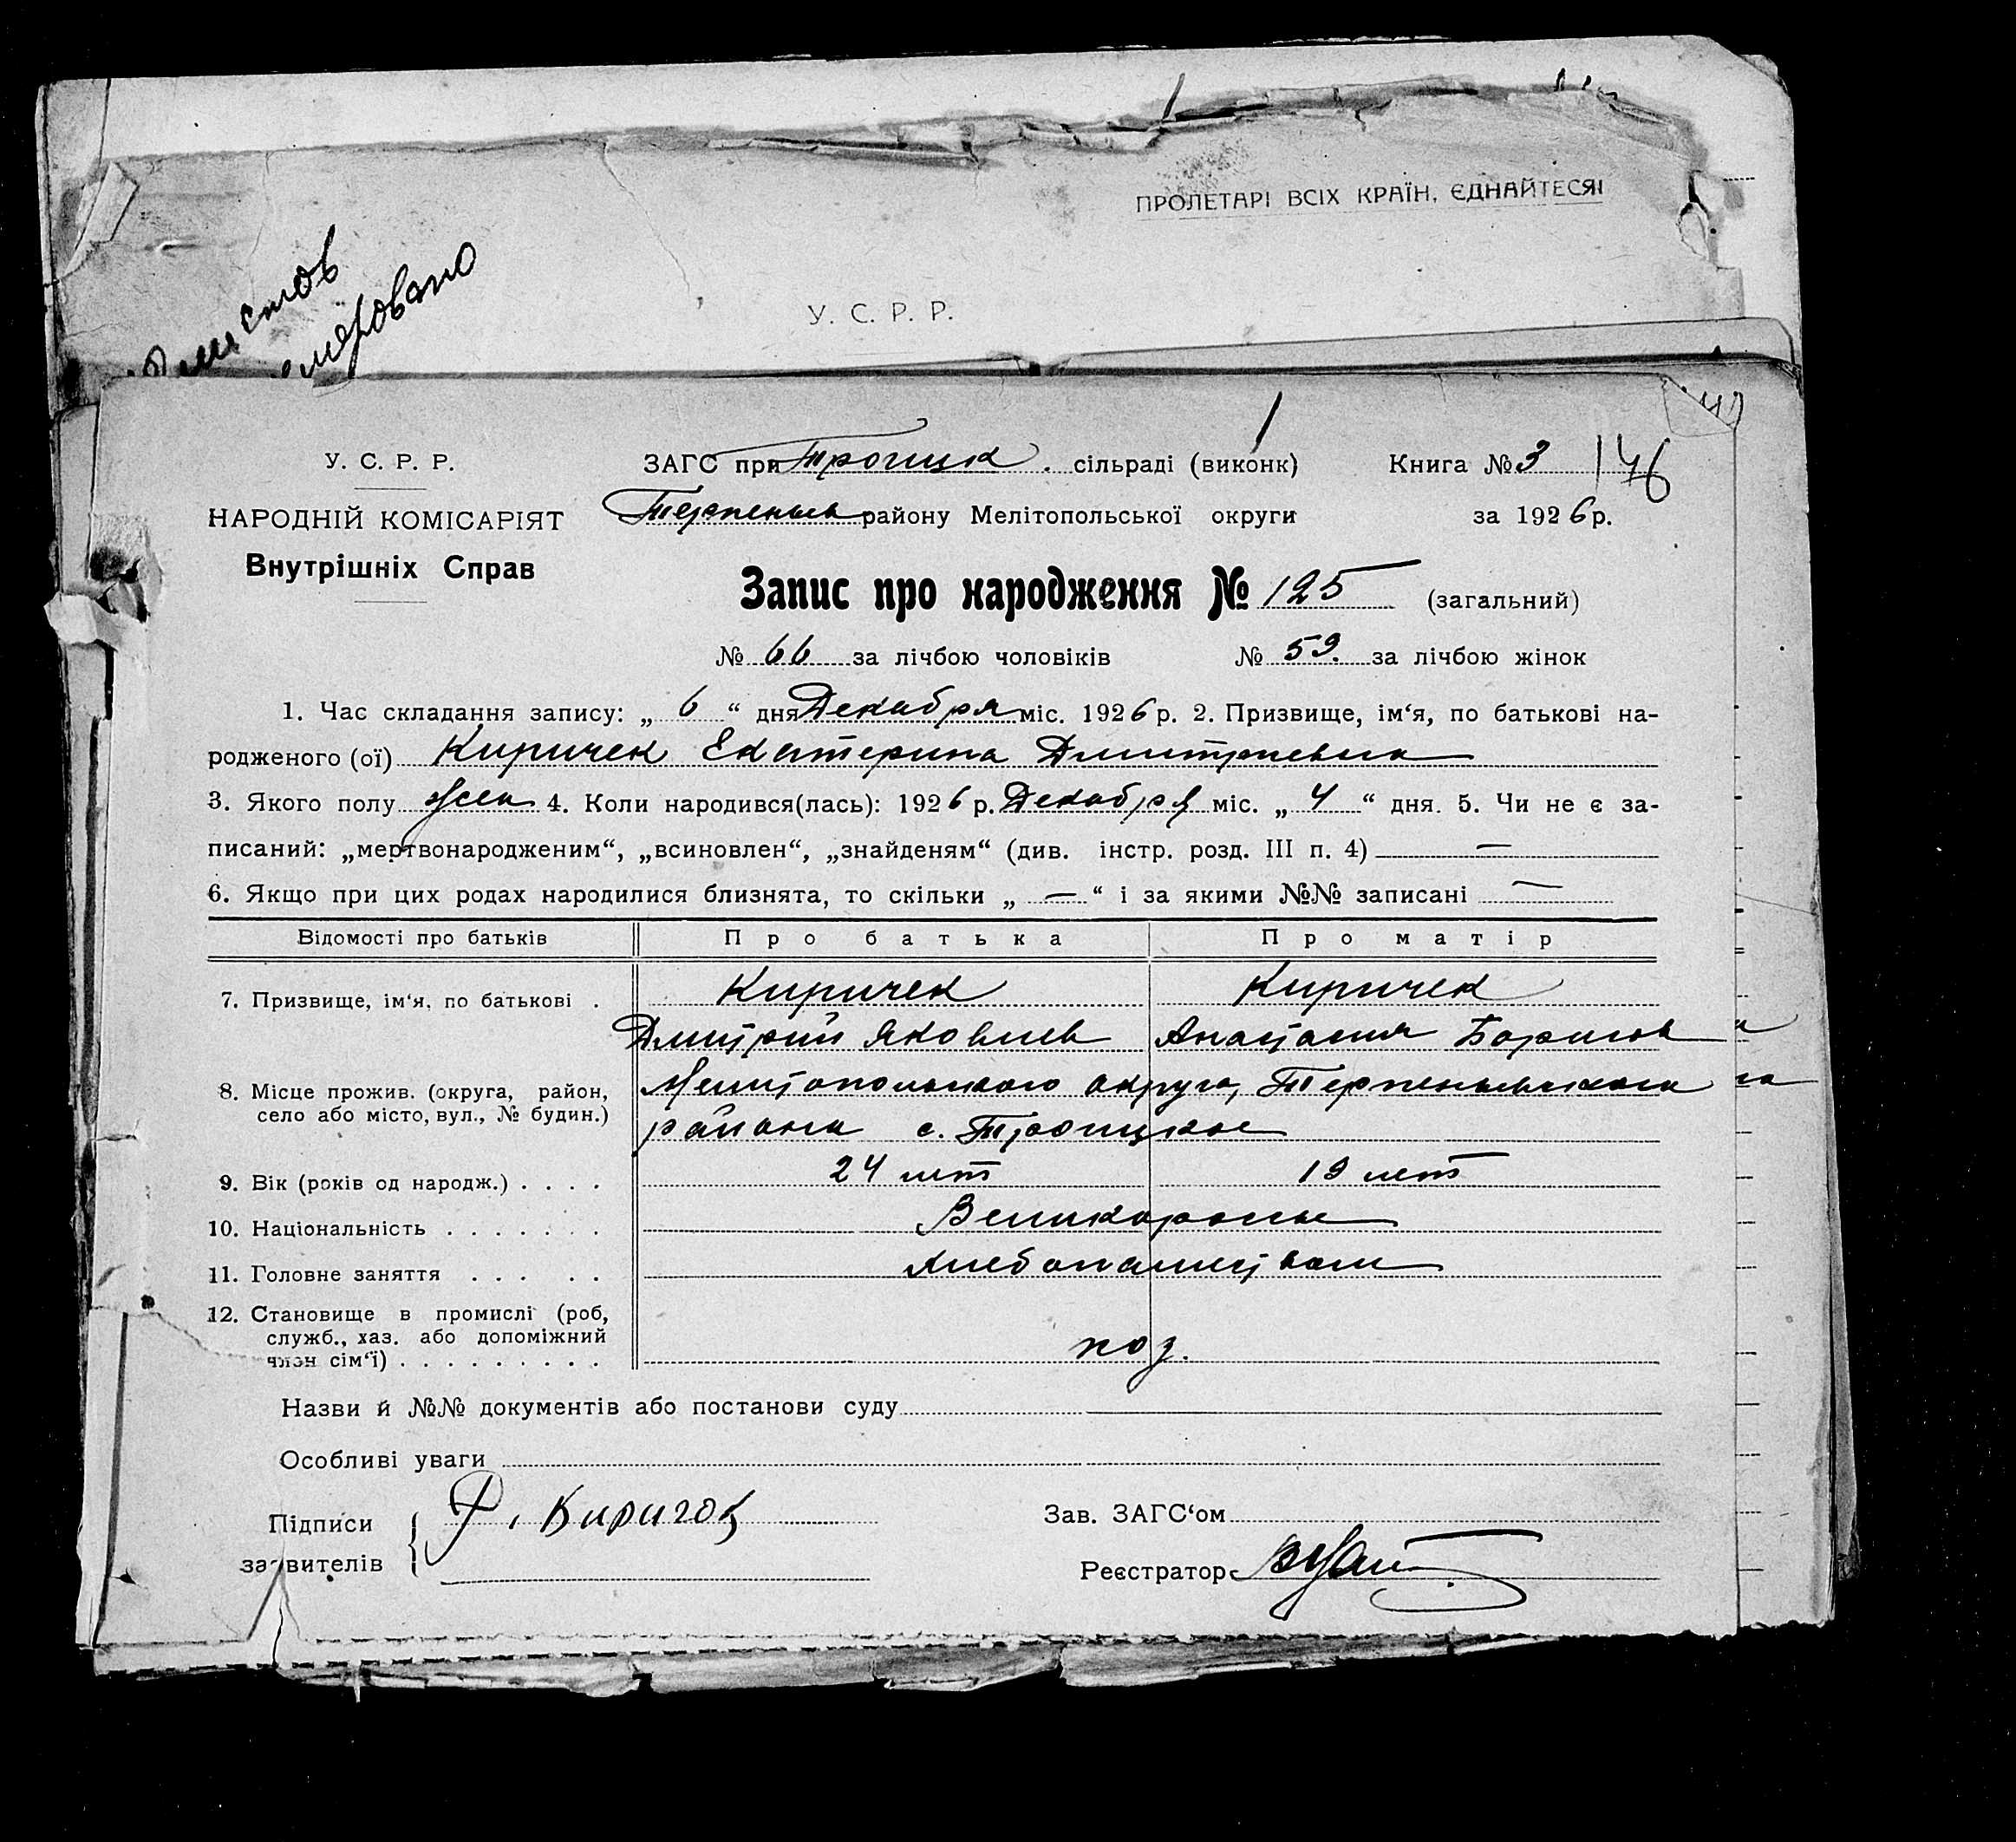 ПРОЛЕТАРІ ВСІХ КРАЇН, ЄДНАЙТЕСЯ!
У. С. Р. Р.
У. С. Р. Р.
НАРОДНІЙ КОМІСАРІЯТ
Внутрішніх Справ
ЗАГС при Троицк. сільраді (виконк)
Книга № 3
146
Терпеньев району Мелітопольської округи
за 1926 р.
Запис про народження № 125 (загальний)
№ 66 за лічбою чоловіків № 59. за лічбою жінок
1. Час складання запису: „ 6 “ дня Декабря міс. 1926 р. 2. Призвище, ім‘я, по батькові на-
родженого (ої) Киричек Екатерина Дмитриевна
3. Якого полу жен 4. Коли народився(лась): 1926 р. Декабря міс. „ 4 “ дня. 5. Чи не є за-
писаний: „мертвонародженим“, „всиновлен“, „знайденям“ (див. інстр. розд. III п. 4) —
6. Якщо при цих родах народилися близнята, то скільки „ — “ і за якими №№ записані —
Відомості про батьків Про батька Про матір
7. Призвище, ім‘я, по батькові . Киричек Киричек
Дмитрий Яковлев Анастасия Борисов
8. Місце прожив. (округа, район,
село або місто, вул., № будин.)
Мелитопольского округа, Терпеньевского
района с. Троицкое
9. Вік (років од народж.) . . . . 24 лет 19 лет
10. Національність . . . . . . . Великороссы
11. Головне заняття . . . . . Хлебопашеством
12. Становище в промислі (роб,
служб., хаз. або допоміжний
член сім‘ї) . . . . . . . . . хоз.
Назви й №№ документів або постанови суду
Особливі уваги
Підписи
заявителів
Зав. ЗАГС‘ом
Реєстратор